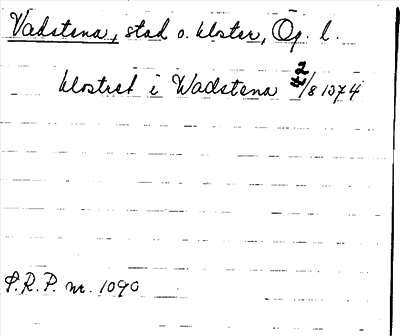 Vadstena, stad o. kloster, Ög. l.
klostret i Wadstena 2/8 1374
P.R.P. nr. 1090